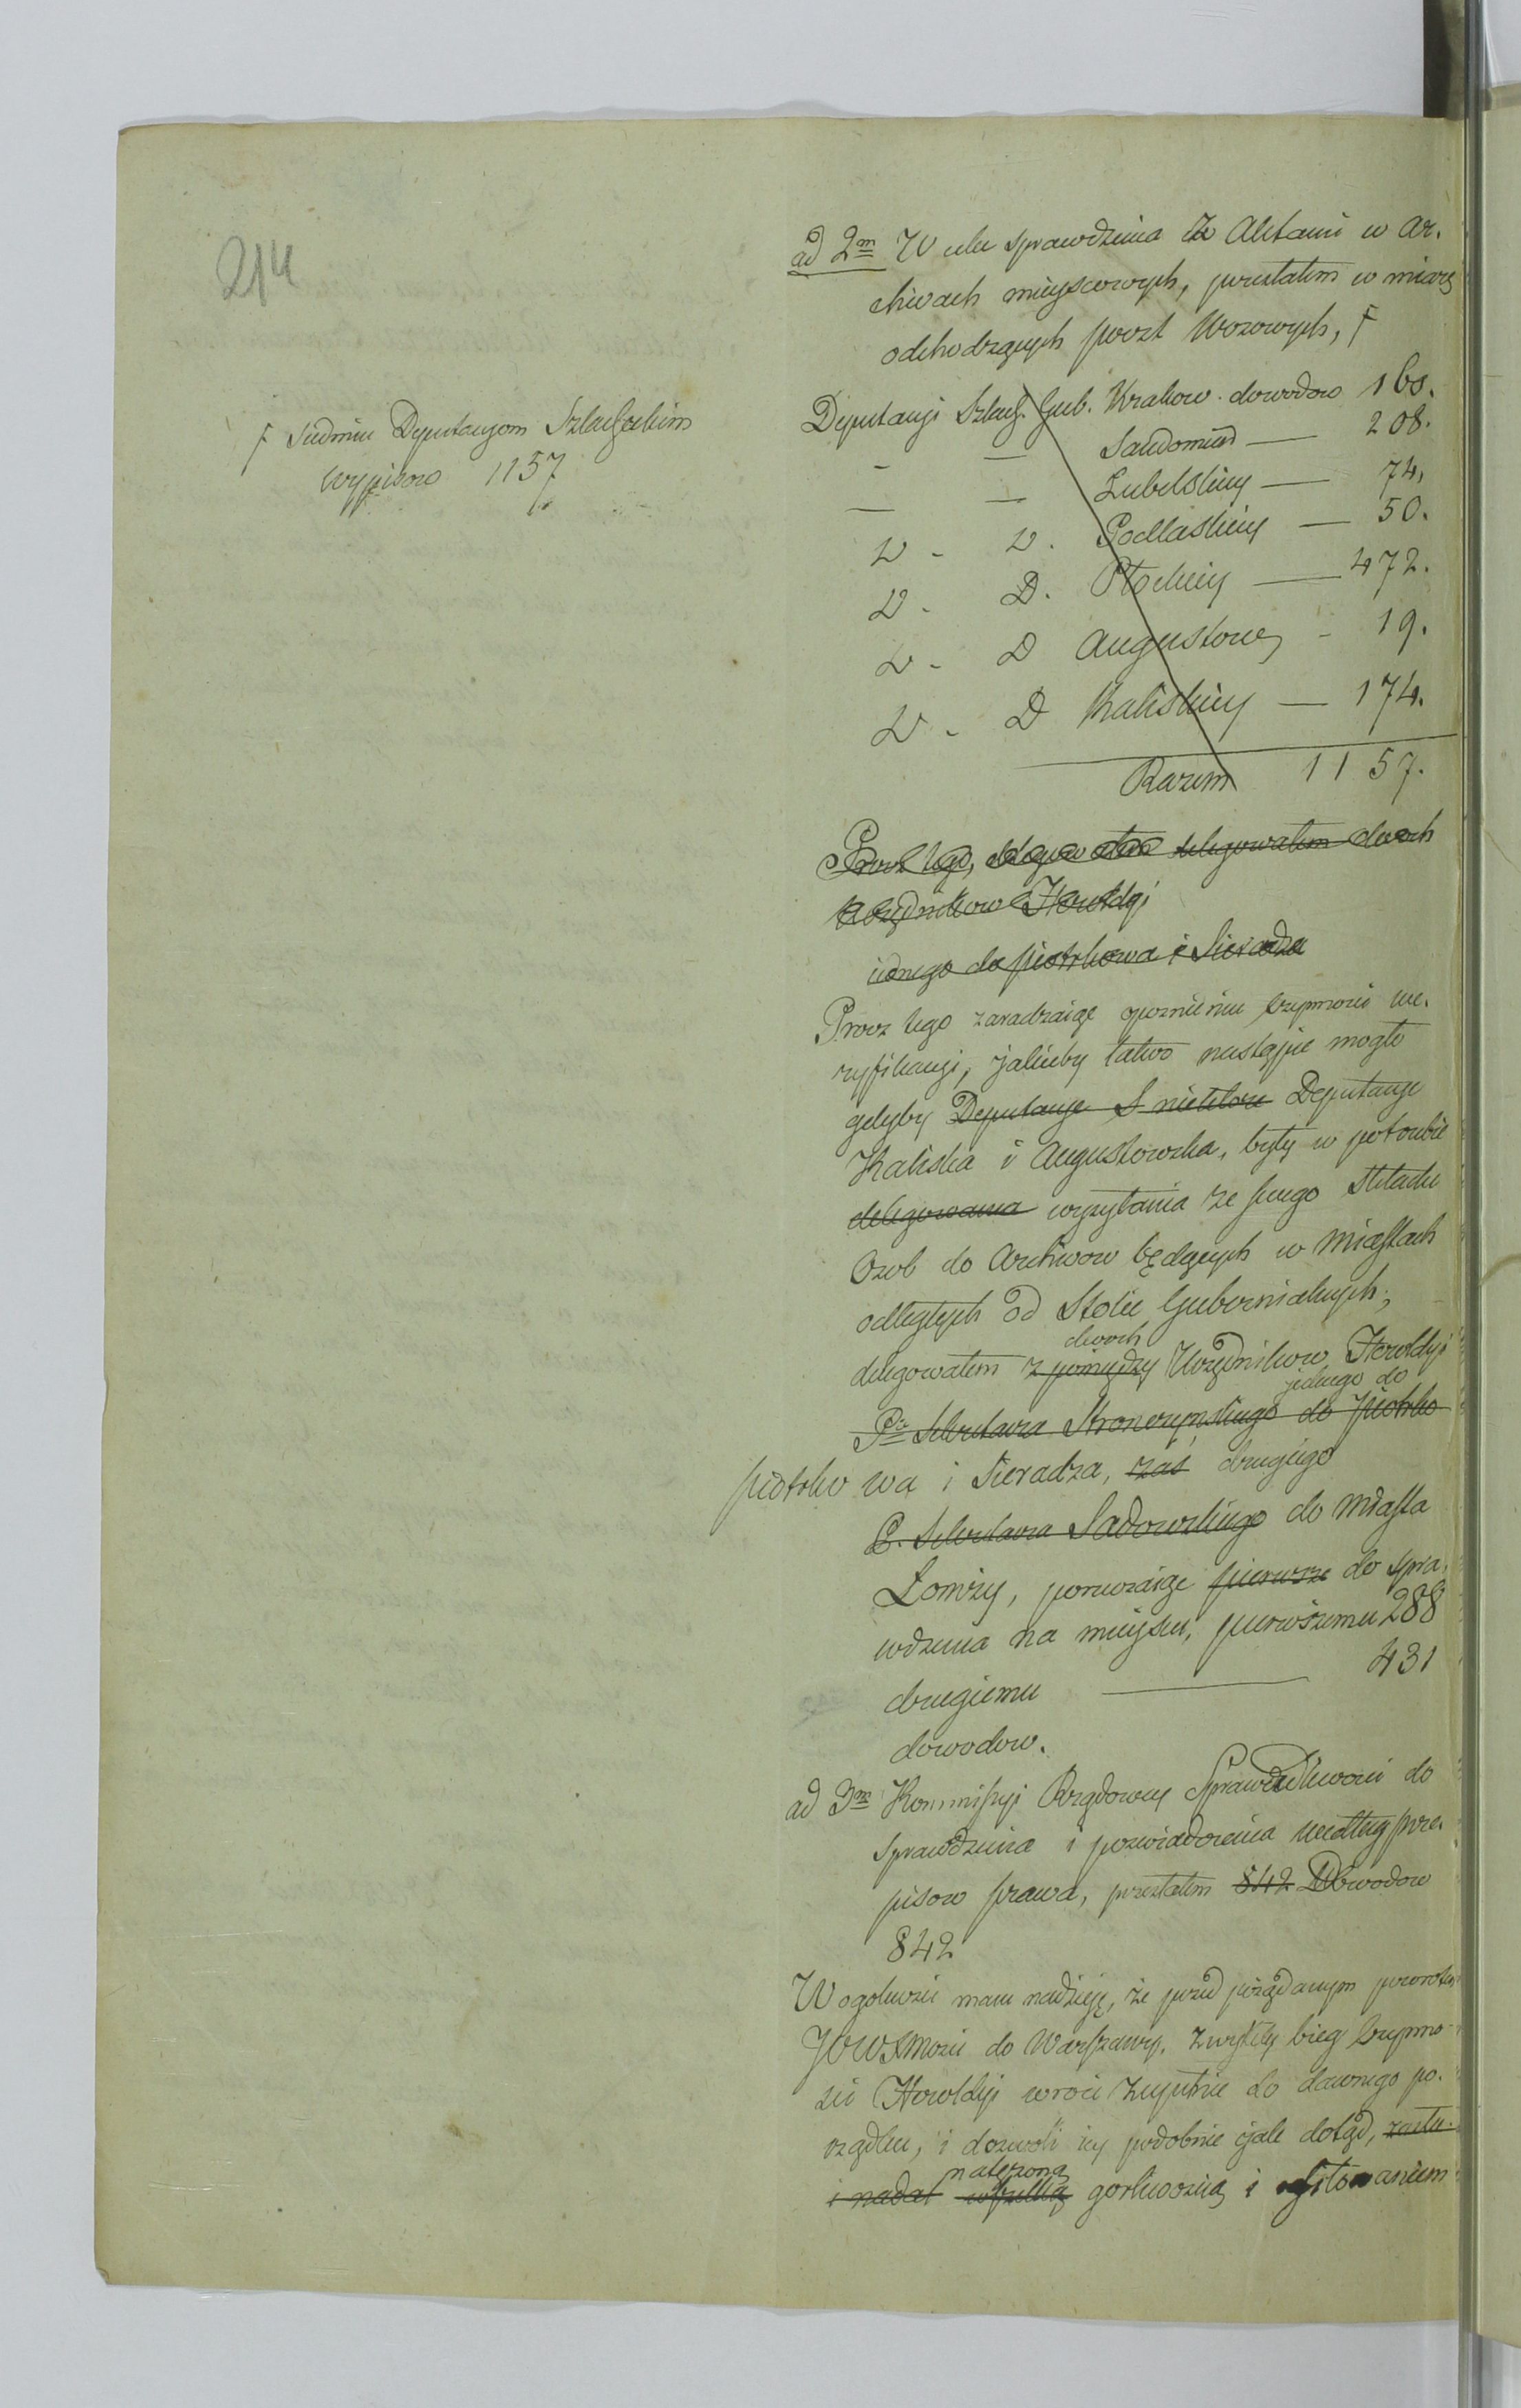 214
ad 2m W celu sprawdzenia ze Aktami w Ar-
chiwach mieyscowych, przesłałem w miarę
odchodzących poczt Wozowych, F
F siedmiu Deputacyom Szlacheckim
wypisow 1157
Deputacyi Szlach. Gub. Krakow. dowodow 160.
- — Sandomier — 208.
— — Lubelskiey — 74,
D - D. Podlaskiey — 50.
D - D. Płockiey — 472.
D - D Augustows - 19.
D - D Kaliskiey — 174.
Razem 1157.
Procz tego, delegowałem dwoch
Urzędnikow Heroldyi
iednego do Piotrkowa i Sieradza
Procz tego zaradzaiąc opoznieniu czynnosci we-
ryfikacyi, jakieby łatwo nastąpic mogło
gdyby Deputacye S niektore Deputacye
Kaliska i Augustowska, były w potrzebie
delegowania wysyłania ze swego składu
Osob do Archiwow będących w Miastach
odległych od Stolic Gubernialnych,
dwoch
delegowałem z pomiędzy Urzędnikow Heroldyi
jednego do
Pa Sekretarza Stronczynskiego do Piotrko
Piotrko wa i Sieradza, zaś drugiego
P. Sekretarza Sadowskiego do Miasta
Łomży, poruczaiąc pierwsze do spra-
wdzenia na mieyscu, pierwszemu 288
drugiemu — 431
dowodow.
ad 3m Kommissyi Rządowey Sprawiedliwosci do
sprawdzenia i poswiadczenia według prze-
pisow prawa, przesłałem 842 Dowodow
842
W ogolnosci mam nadzieję, że przed pożądanym powrotem
JWWXMosci do Warszawy, zwykły bieg czynno-
sci Heroldyi wroci zupełnie do dawnego po-
rządku, i dozwoli iey podobnie jak dotąd,
natężoną
i nadal wszelką gorliwoscią i usiłowaniem